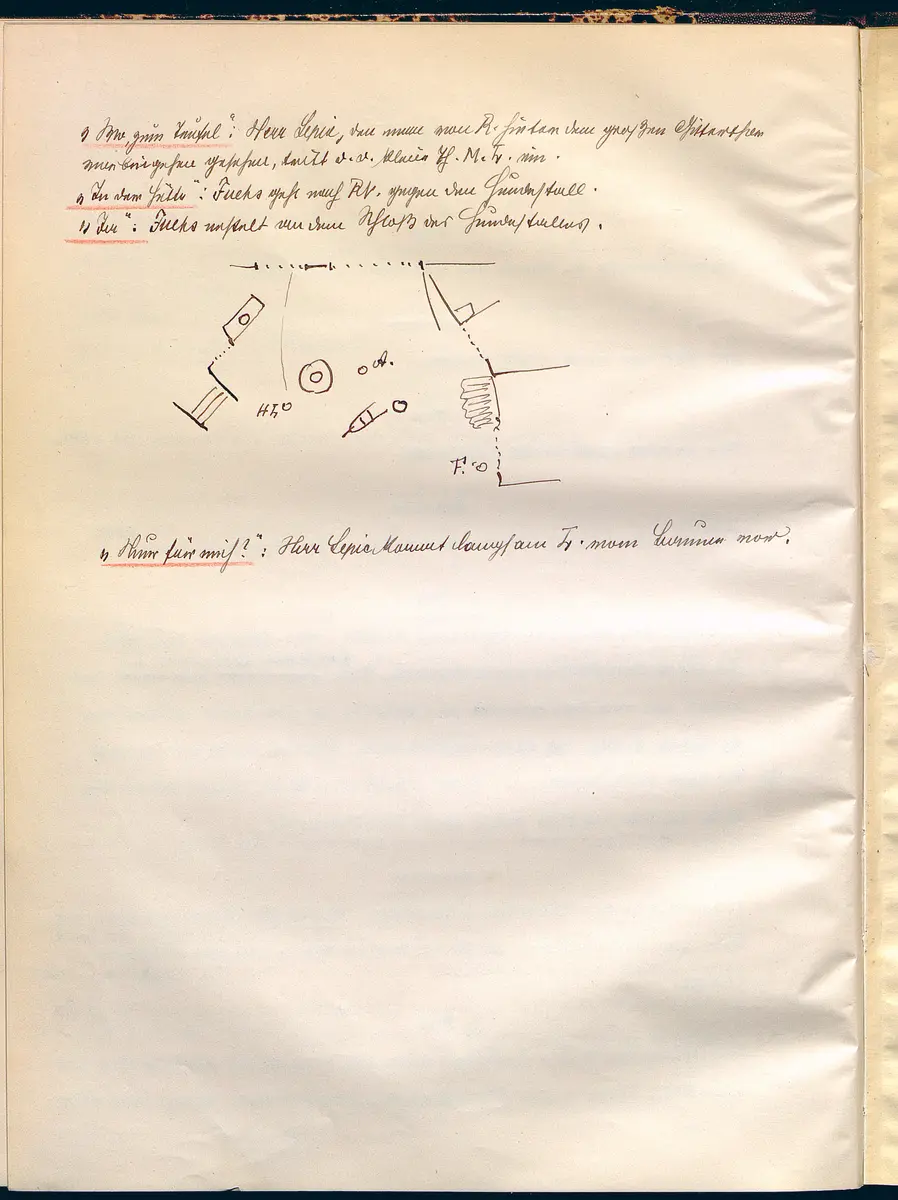 „Wo, zum Teufel“: Herr Lepic, den man von R. hinter dem großen Gitterthor
vorbeigehen gesehen, tritt d. d. kleine Th. M. L. ein.
„In der Hütte“: Fuchs geht nach RV. gegen den Hundestall.
„Ja“: Fuchs nestelt an dem Schloß des Hundestalles.
A.
HL
F.
„Nur für mich?“: Herr Lepic kommt langsam L. vom Brunnen vor.